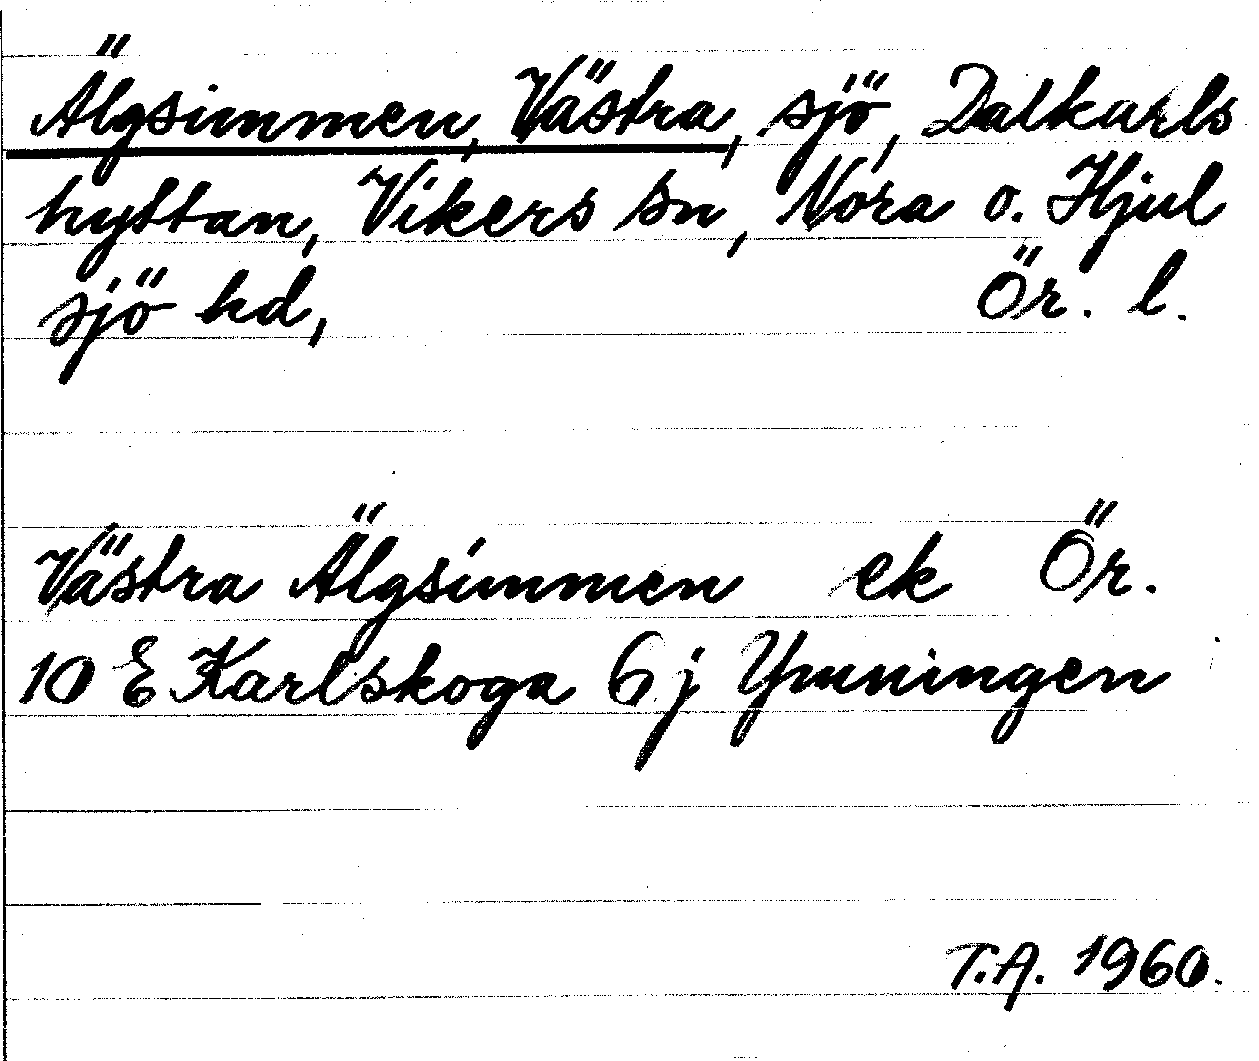 Älgsimmen, Västra, sjö, Dalkarls
hyttan, Vikers sn, Nora o. Hjul
sjö hd, Ör. l.
Västra Älgsimmen ek Ör.
10 E Karlskoga 6 j Ymningen
T.A. 1960.